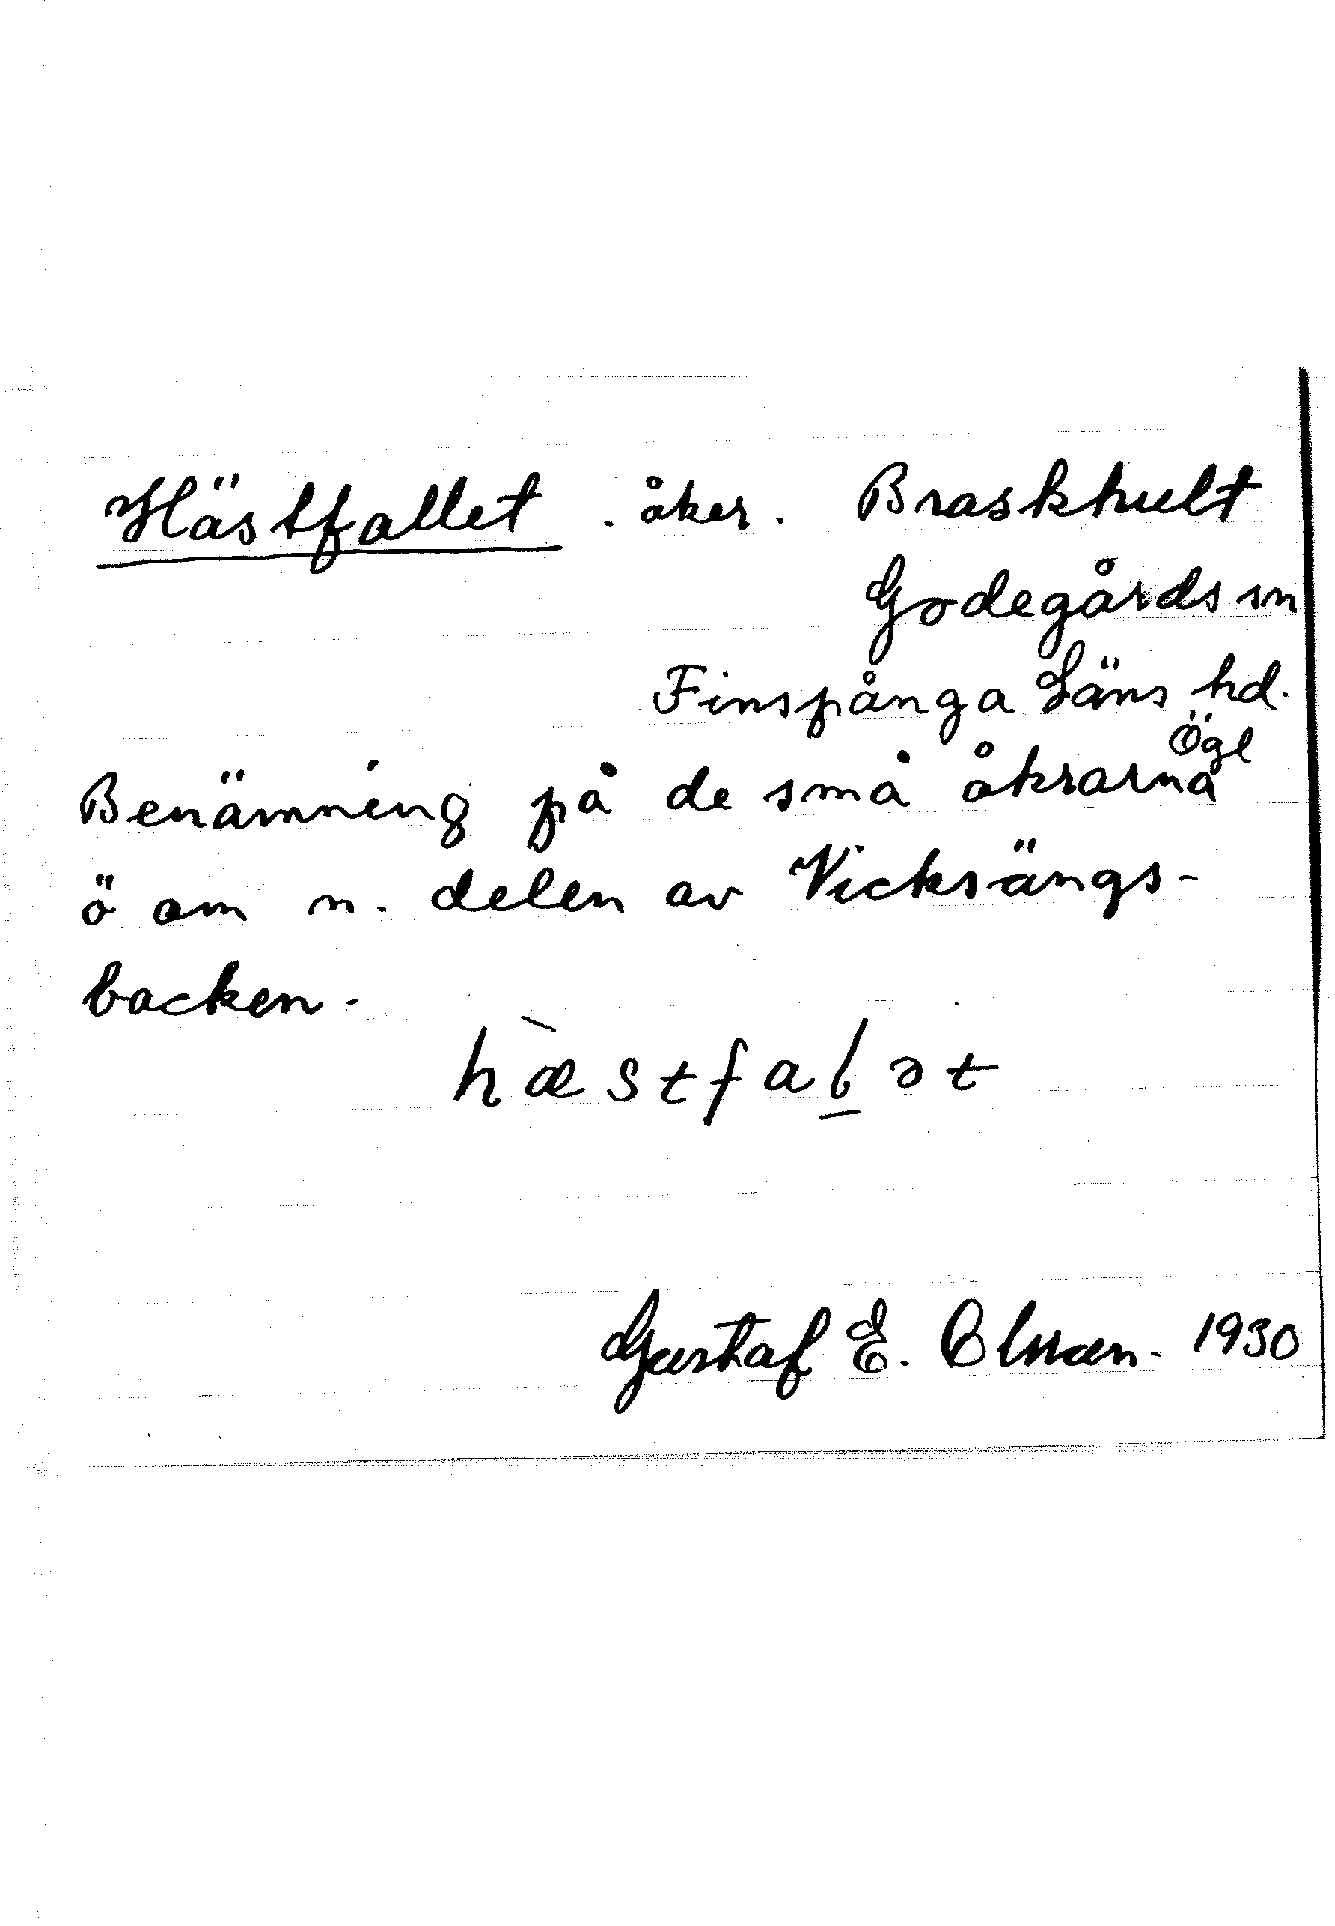 Hästfallet . åker . Braskhult
Godegårds sn
Finspånga Läns hd.
Ögl
Benämning på de små åkrarna
ö om n. delen av Vicksängs-
backen.
hæ̀stfal̠ət
Gustaf E. Olsson. 1930